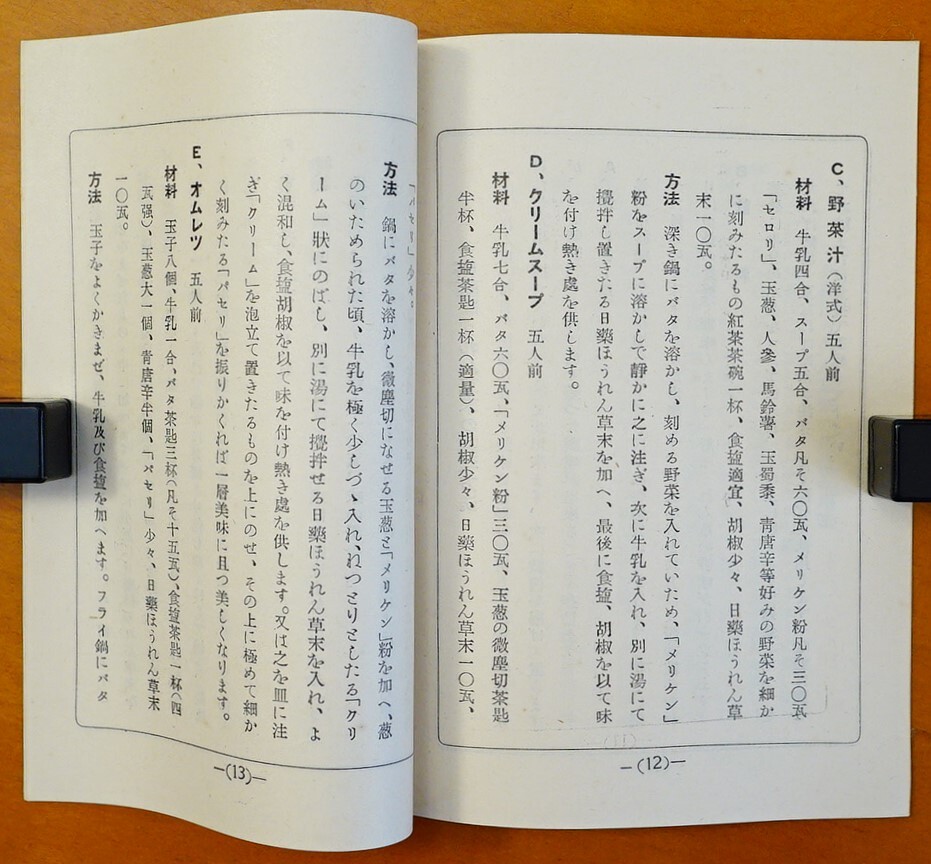 C、野菜汁(洋式) 五人前
材料 牛乳四合、スープ五合、バタ凡そ六〇瓦、メリケン粉凡そ三〇瓦
「セロリ」、玉葱、人參、馬鈴薯、玉蜀黍、青唐辛等好みの野菜を細か
に刻みたるもの紅茶茶碗一杯、食塩適宜、胡椒少々、日藥ほうれん草
末一〇瓦。
方法 深き鍋にバタを溶かし、刻める野菜を入れていため、「メリケン」
粉をスープに溶かして靜かに之に注ぎ、次に牛乳を入れ、別に湯にて
攪拌し置きたる日藥ほうれん草末を加へ、最後に食塩、胡椒を以て味
を付け熱き處を供します。
D、クリームスープ 五人前
材料 牛乳七合、バタ六〇瓦、「メリケン粉」三〇瓦、玉葱の微塵切茶匙
半杯、食塩茶匙一杯(適量)、胡椒少々、日藥ほうれん草末一〇瓦、
—(12)—
「パセリ」少々。
方法 鍋にバタを溶かし、微塵切になせる玉葱と「メリケン」粉を加へ、葱
のいためられた頃、牛乳を極く少しづゝ入れ、ねつとりとしたる「クリ
ーム」狀にのばし、別に湯にて攪拌せる日藥ほうれん草末を入れ、よ
く混和し、食塩胡椒を以て味を付け熱き處を供します。又は之を皿に注
ぎ「クリーム」を泡立て置きたるものを上にのせ、その上に極めて細か
く刻みたる「パセリ」を振りかくれば一層美味に且つ美しくなります。
E、オムレツ 五人前
材料 玉子八個、牛乳一合、バタ茶匙三杯(凡そ十五瓦)、食塩茶匙一杯(四
瓦强)、玉葱大一個、青唐辛半個、「パセリ」少々、日藥ほうれん草末
一〇瓦。
方法 玉子をよくかきまぜ、牛乳及び食塩を加へます。フライ鍋にバタ
—(13)—